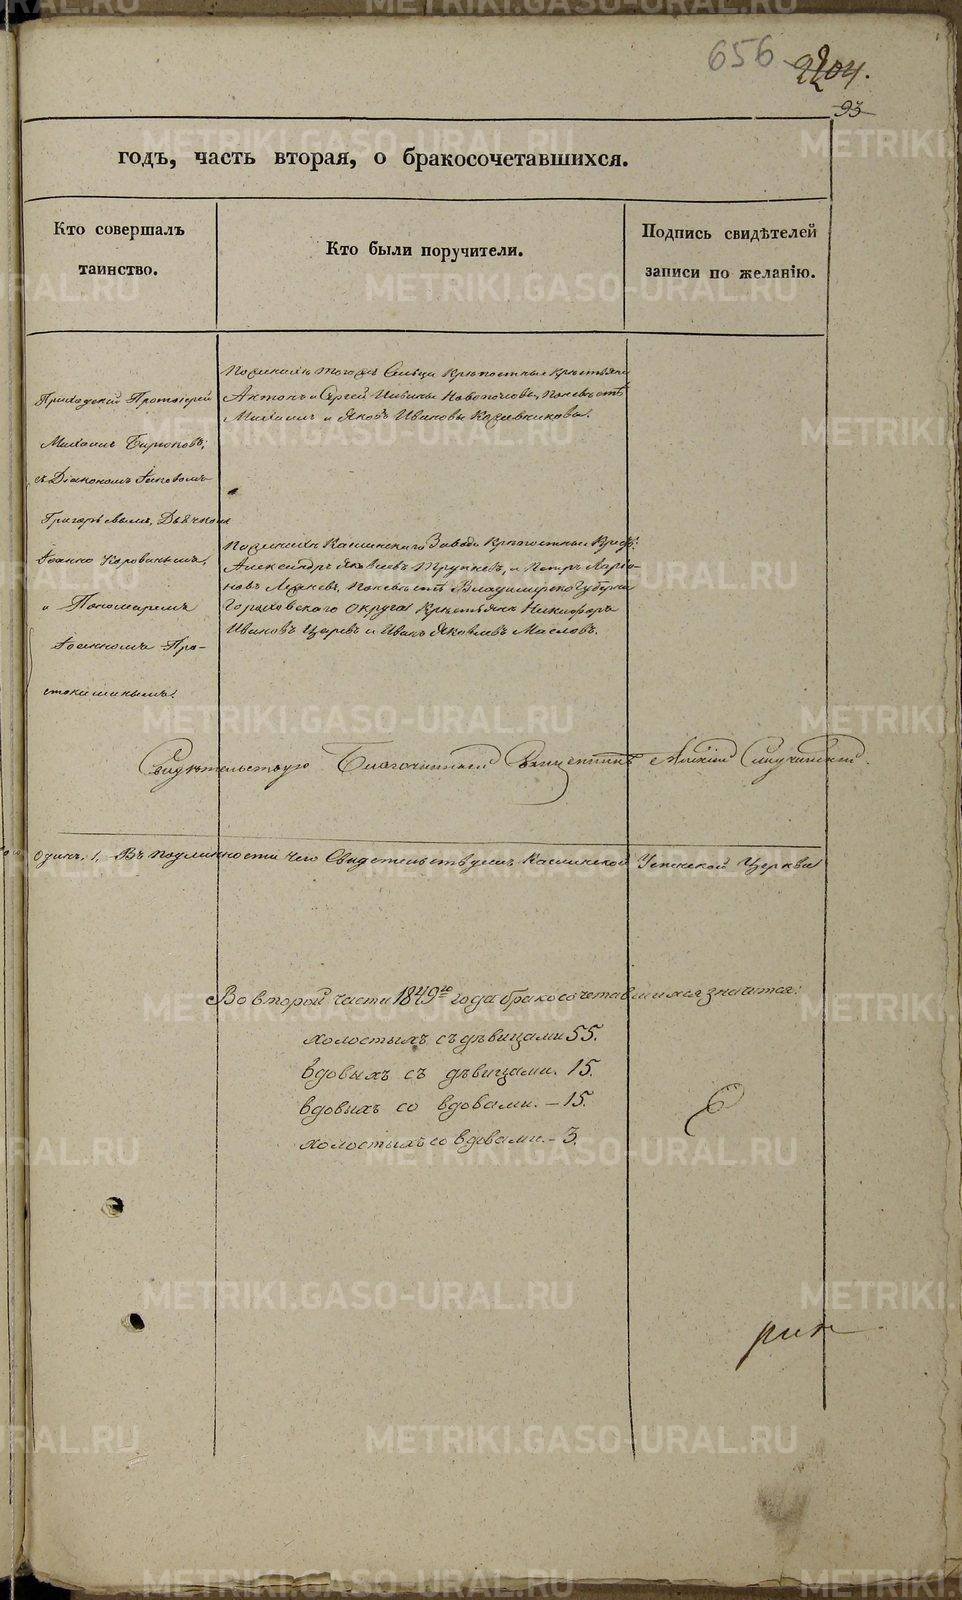 656
2204.
93
годъ, часть вторая, о бракосочетавшихся.
Кто совершалъ
таинство.
Кто были поручители.
Подпись свидѣтелей
записи по желанію.
Приходскій Протоіерей
Михаилъ Бирюковъ;
съ Діакономъ Іаковомъ
Григорьевымъ, Дьячкомъ
Іоанно Коровинымъ,
и Пономаремъ
Іоанномъ Про-
стокишинымъ.
По женихѣ тогоже Сельца Крѣпостныя Крестьяне
Антонъ и Сергей Ивановы Новополовы, По невѣстѣ
Михаилъ и Яковъ Ивановы Кожевниковы.
По женихѣ Каслинскаго Завода Крѣпостныя
Александръ Яковлевъ и Петръ Ларіо-
новъ По невѣстѣ Владимирской Губерніи
Гороховскаго округа Крестьянъ Никифоръ
Ивановъ Царевъ и Иванъ Яковлевъ Масловъ.
Свидѣтельствую Благочинный Священникъ
Одинъ. 1. Въ подлинности чего Свидетельствуемъ Каслинской Успенской Церкви
Во второй части 1849го года бракосочетавшихся значится:
холостыхъ съ дѣвицами 55.
вдовыхъ съ дѣвицами. 15.
вдовыхъ со вдовами. – 15.
холостыхъ со вдовами. – 3.
METRIKI.GASO-URAL.RU